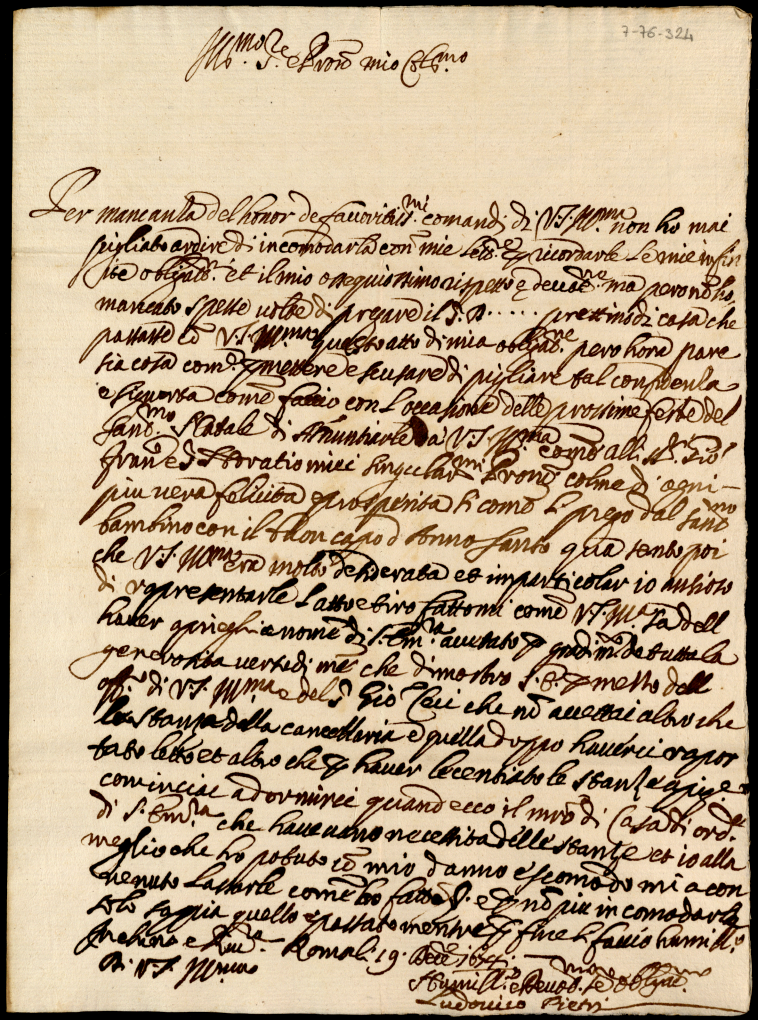 7-76-324
Ill.mo Sre e Pron mio Col.mo
Per mancanza del honor de favoritiss.mi comandi di V.S. Ill.ma non ho mai
pigliato ardire di incomodarla con mie et ricordarle le mie infin
ite oblig.ni et il mio ossequiosissimo rispetto e ma pero non ho
mancato spesse volte di pregare il S. D. . . . . . di casa che
passasse con V.S. Ill.ma questo atto di mia pero hora pare
sia cosa com. permettere e scusare di pigliare tal confidenza
e sigurta come faccio con l'occasione delle prossime feste del
Sant.mo Natale di Annuntiarle a V.S. Ill.ma come alli SS.ri Gio
Fran.co e Horatio miei singular.mi Proni colme di ogni
piu vera felicita e prosperita si come li prego dal Sant.mo
bambino con il buon capo d Anno Santo qua tanto poi
che V.S. Ill.ma era molto desiderata et in particolar io ansioso
di rapresentarle l atto e tiro fattomi come V.S. Ill.ma sa dell
haver nome di S. Em.za accettato de tutta la
generosita verso di me che dimostro S. E. per mezzo dell
di V.S. Ill.ma e del S. Gio Ceci che non accettai altro che
le stanze della cancelleria e quella doppo haverci rapor
tato letto et altro che per haver licentiato le stanze a pigione
cominciai a dormirci quand ecco il mro di Casa di ord.e
di S. Em.za che havevano necessita delle stanze et io alla
meglio che ho potuto con mio danno e scomodo mi a con
venuto lassarle come ho fatto S. e per non piu incomodarla
solo sappia quello e passato mentre per fine li faccio humill.a
inchino e Roma li 19 Xbre
Di V.S. Ill.ma
Humill.o e Devo.mo ser.e oblig.mo
Ludovico Pietri